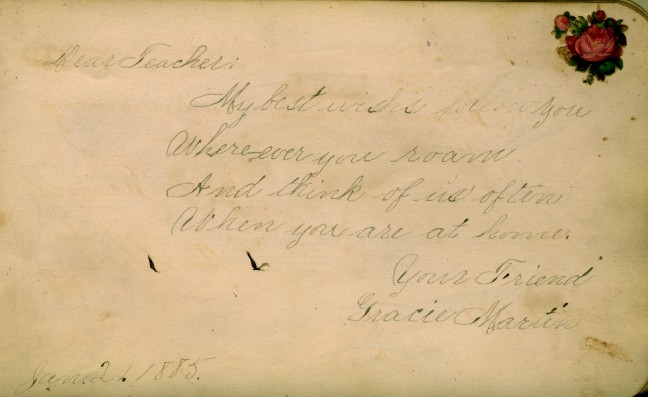 Dear Teacher:
My best wishes follow you
Where-ever you roam
And think of us often
When you are at home.
Your Friend
Gracie Martin
Jan. 21. 1885.